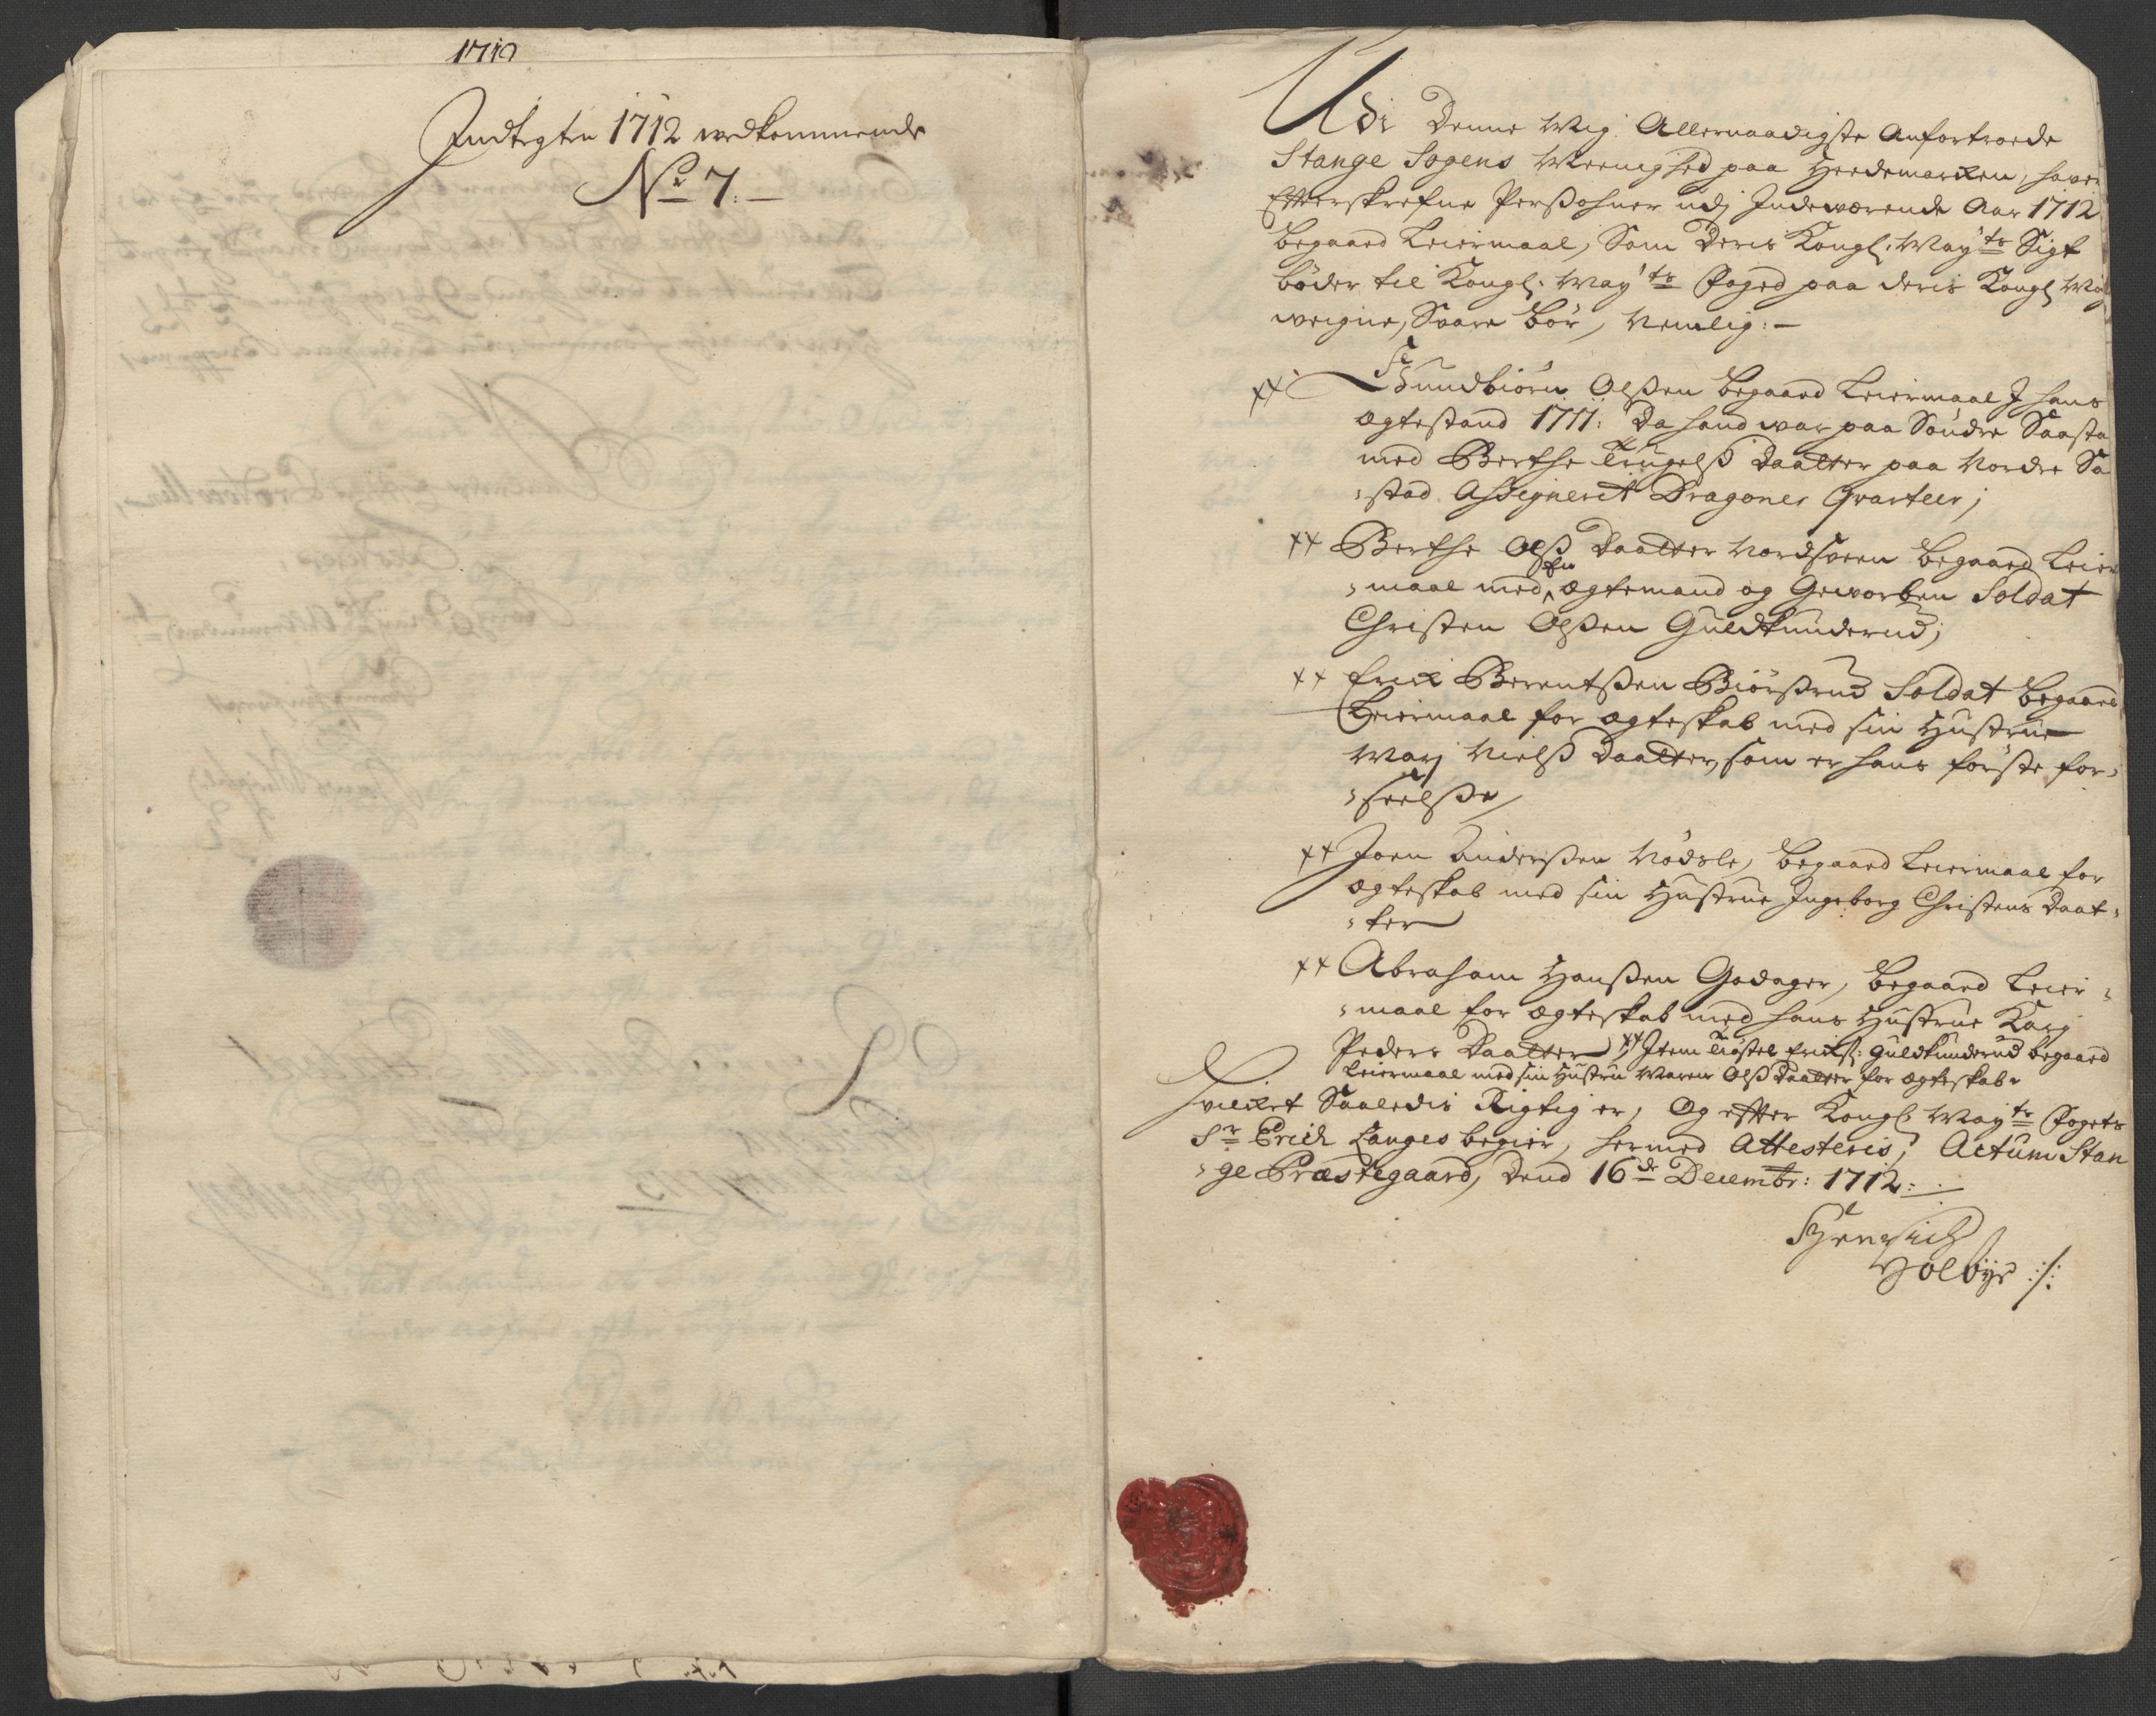 1712
Indtegten 1712 vedkommende
No 7.
Udi Denne Mig Allernaadigste Anfortroede
Stange Sogens Meenighed paa Hedemarken, haver
Effterskrefne Persohner udj Indeværende Aar 1712
begaaed Leiermaal, Som Deris Kongl. May.ts Sigt
böder til Kongl. May.ts Foged paa deris Kongl May
veigne, Svare bör, Nemlig:
++ Gundbiörn Olßen begaaed Leiermaal I hans
ægtestand 1711: Da hand var paa Söndre Saasta
med Berthe Trugelß Daatter paa Nordre Sa
stad Assigneret Dragoner Qvarteer;
++ Berthe Olß Daatter Nordsveen begaaed Leier
maal med en ægtemand og Gevorben Soldat
Christen Olßen Guldkunderud;
++ Erick Berentßen Biörßrud Soldat begaaed
Leiermaal for ægteskab med sin Hustrue
Marj Nielß Daatter, som er hans förste for-
seelße
++ Joen Anderßen Nödsle, begaaed Leiermaal for
ægteskab med sin Hustrue Ingeborg Christens Daat-
ter
++ Abraham Hanßen Godager, begaaed Leier-
maal for ægteskab med hans Hustrue Karj
Peders Daatter ++ Item Tröstel Erickß: Guldkunderud begaaed
Leiermaal med sin Hustru Maren Olß Daatter for ægteskab
Hvilket Saaledis Rigtig er, Og effter Kongl. May.ts Fogets
Sr Erich Langes begier, hermed Attesteris, Actum Stan
ge Præstegaard, Dend 16de Decembr: 1712:
Henrich
Holbye